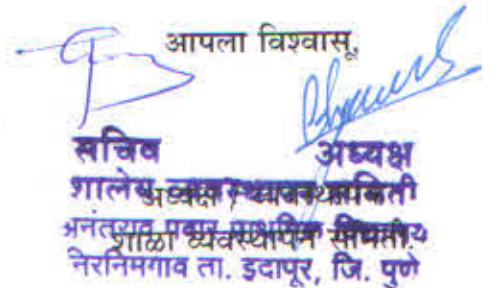 आपला विश्वासू,
सचिव अध्यक्ष
शालेय व्यवस्थापन समिती
अध्यक्ष /
अनंतराव पवार प्राथमिक विद्यालय
शाळा व्यवस्थापन समिती.
निरनिमगाव ता. इंदापूर, जि. पुणे